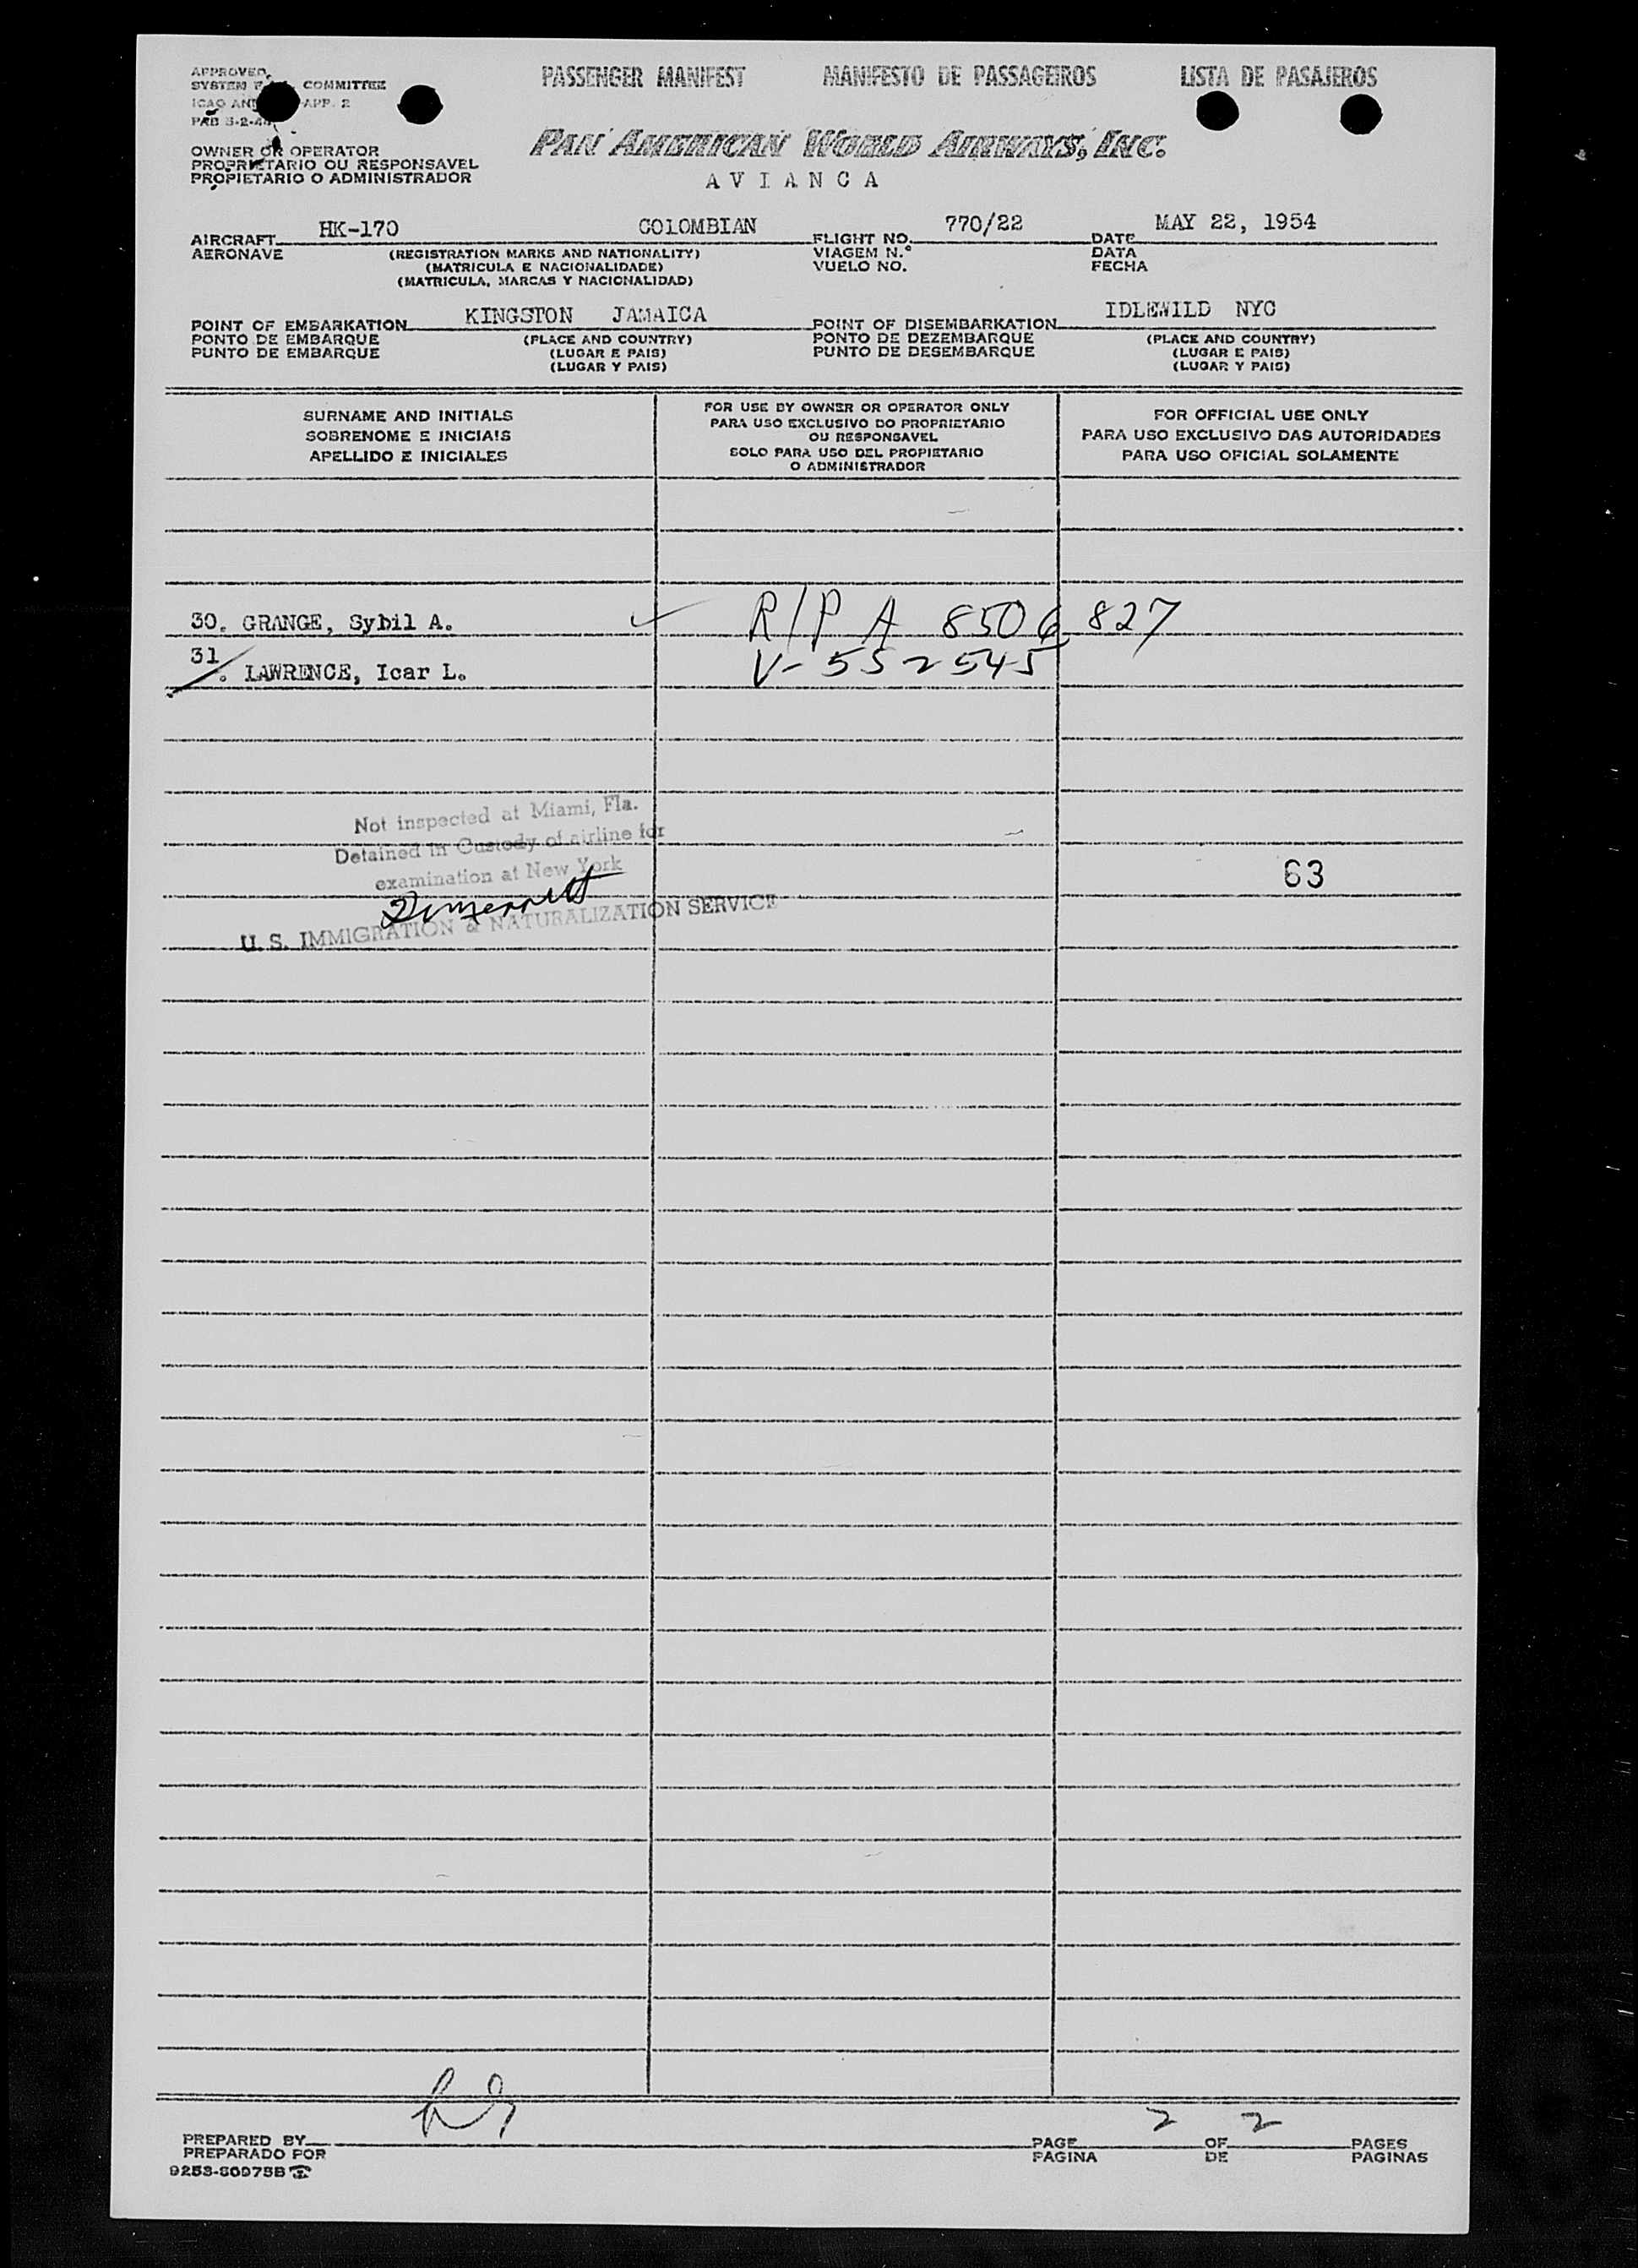 APPROVED
SYSTEM COMMITTEE
ICAO APP. 2
PASSENGER MANIFEST MANIFESTO DE PASSAGEIROS LISTA DE PASAJEROS
OWNER OR OPERATOR
PROPRIETARIO OU RESPONSAVEL
PROPIETARIO O ADMINISTRADOR
PAN AMERICAN WORLD AIRWAYS, INC.
AVIANCA
AIRCRAFT HK-170 COLOMBIAN FLIGHT NO. 770/22 DATE MAY 22, 1954
AERONAVE (REGISTRATION MARKS AND NATIONALITY) VIAGEM N.º DATA
(MATRICULA E NACIONALIDADE) VUELO NO. FECHA
(MATRICULA, MARCAS Y NACIONALIDAD)
POINT OF EMBARKATION KINGSTON JAMAICA POINT OF DISEMBARKATION IDLEWILD NYC
PONTO DE EMBARQUE (PLACE AND COUNTRY) PONTO DE DEZEMBARQUE (PLACE AND COUNTRY)
PUNTO DE EMBARQUE (LUGAR E PAIS) PUNTO DE DESEMBARQUE (LUGAR E PAIS)
(LUGAR Y PAIS) (LUGAR Y PAIS)
SURNAME AND INITIALS
SOBRENOME E INICIAIS
APELLIDO E INICIALES
FOR USE BY OWNER OR OPERATOR ONLY
PARA USO EXCLUSIVO DO PROPRIETARIO
OU RESPONSAVEL
SOLO PARA USO DEL PROPIETARIO
O ADMINISTRADOR
FOR OFFICIAL USE ONLY
PARA USO EXCLUSIVO DAS AUTORIDADES
PARA USO OFICIAL SOLAMENTE
30. GRANGE, Sybil A. R/P A 8506 827
31. LAWRENCE, Icar L. V-552545
Not inspected at Miami, Fla.
Detained in Custody of airline for
examination at New York
U. S. IMMIGRATION & NATURALIZATION SERVICE
63
PREPARED BY PAGE 2 OF 2 PAGES
PREPARADO POR PAGINA DE PAGINAS
9253-80975B